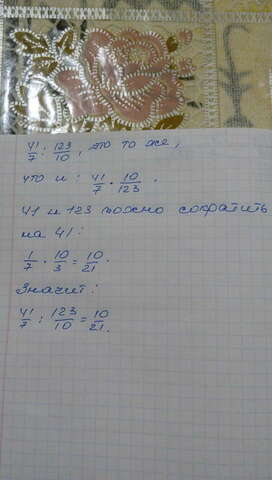 41/7 : 123/10, это то же,
что и : 41/7 · 10/123.
41 и 123 можно сократить
на 41:
1/7 · 10/3 = 10/21.
Значит:
41/7 : 123/10 = 10/21.